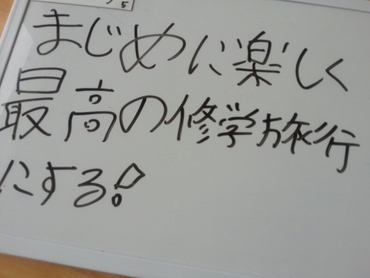 まじめに楽しく
最高の修学旅行
にする!